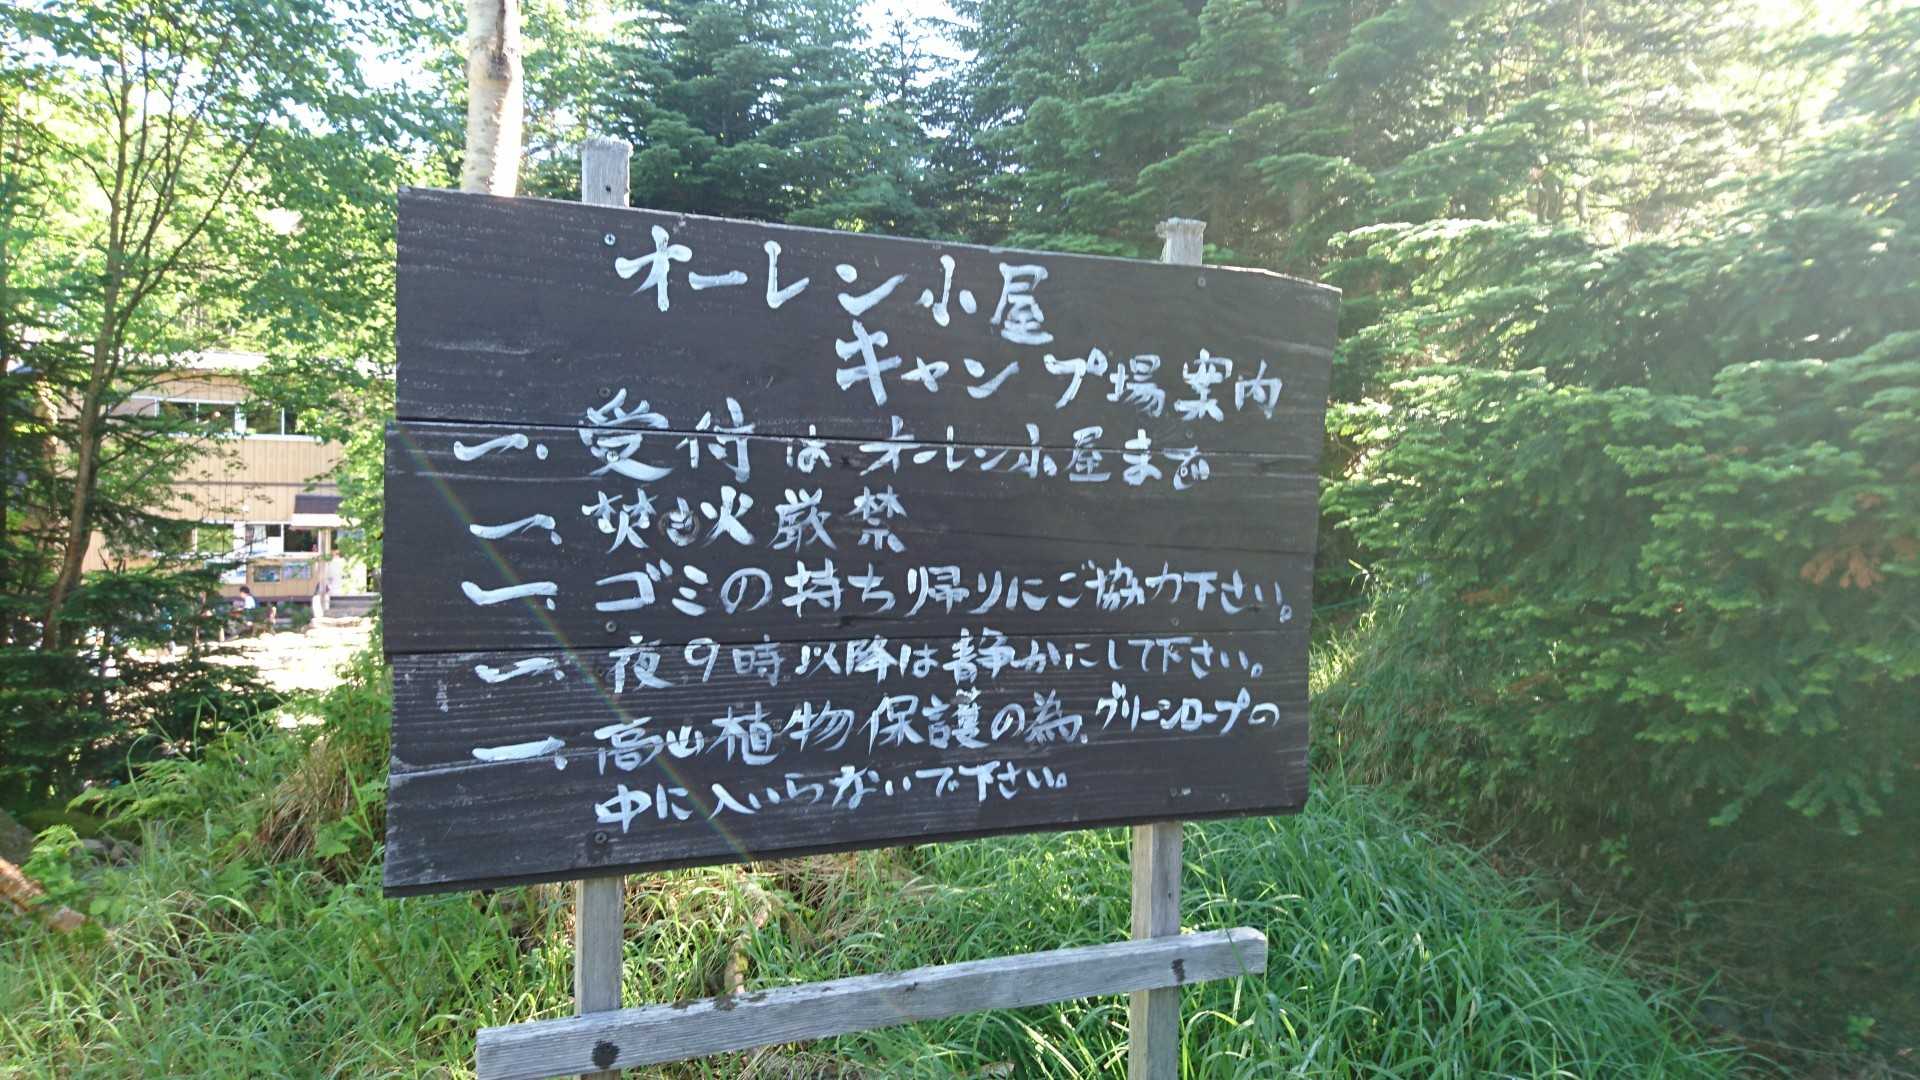 オーレン小屋
キャンプ場案内
一、受付はオーレン小屋まで
一、焚き火厳禁
一、ゴミの持ち帰りにご協力下さい。
一、夜9時以降は静かにして下さい。
一、高山植物保護の為、グリーンロープの
中に入いらないで下さい。